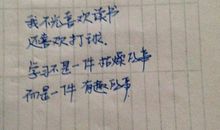 我不光喜欢读书
还喜欢打球.
学习不是一件枯燥的事
而是一件有趣的事.